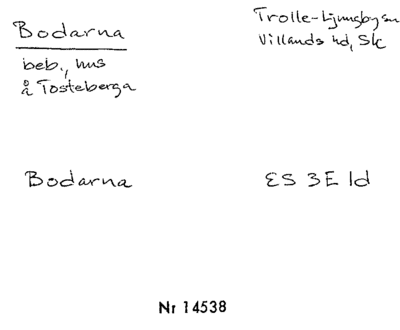 Bodarna
beb., hus
å Tosteberga
Trolle-Ljungby sn
Villands hd, Sk
Bodarna
ES 3E 1d
Nr 14538